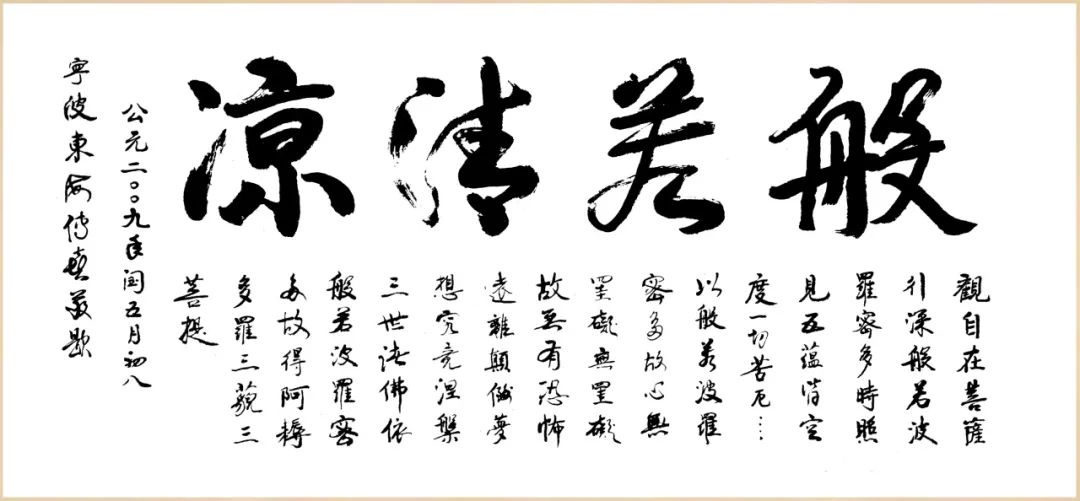 般若清凉
觀自在菩薩
行深般若波
羅密多時照
見五蘊皆空
度一切苦厄…
以般若波羅
密多故心無
罣礙無罣礙
故無有恐怖
遠離顛倒夢
想究竟涅槃
三世諸佛依
般若波羅密
多故得阿耨
多羅三藐三
菩提
公元二〇〇九年闰五月初八
寧波東海传喜敬题